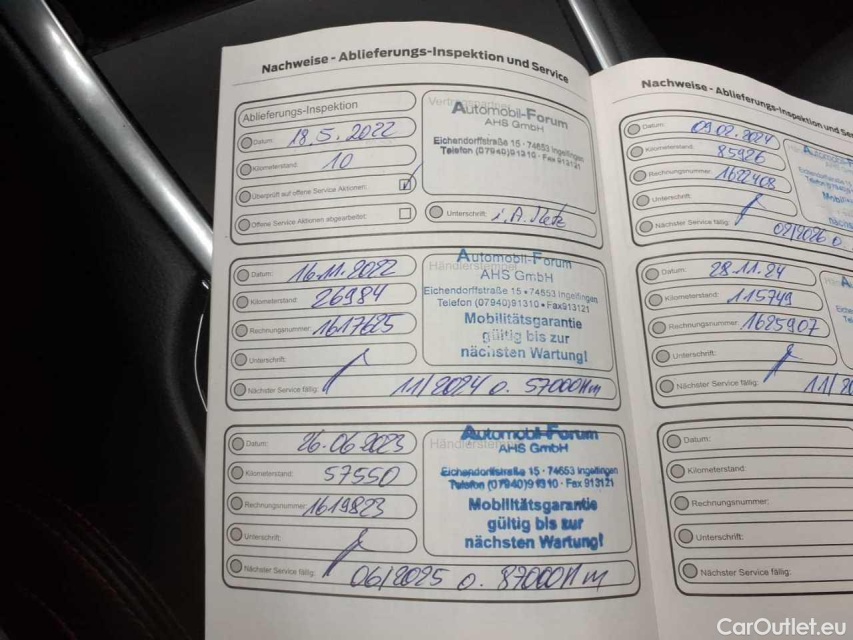 Nachweise - Ablieferungs-Inspektion und Service
Ablieferungs-Inspektion
Datum: 18.5.2022
Kilometerstand: 10
Überprüft auf offene Service Aktionen:
Offene Service Aktionen abgearbeitet:
Automobil-Forum
AHS GmbH
Eichendorffstraße 15 · 74653 Ingelfingen
Telefon (07940)91310 · Fax 913121
Unterschrift: i.A.
Datum: 16.11.2022
Kilometerstand: 26984
Rechnungsnummer: 1617625
Unterschrift:
Nächster Service fällig: 11/2024 o. 57000Km
Automobil-Forum
AHS GmbH
Eichendorffstraße 15 · 74653 Ingelfingen
Telefon (07940)91310 · Fax913121
Mobilitätsgarantie
gültig bis zur
nächsten Wartung!
Datum: 26.06.2023
Kilometerstand: 57550
Rechnungsnummer: 1619823
Unterschrift:
Nächster Service fällig: 06/2025 o. 87000Km
Automobil-Forum
AHS GmbH
Eichendorffstraße 15 · 74653 Ingelfingen
Telefon (07940)91310 · Fax 913121
Mobilitätsgarantie
gültig bis zur
nächsten Wartung!
Nachweise - Ablieferungs-Inspektion und Se
Datum: 09.02.2024
Kilometerstand: 85926
Rechnungsnummer: 1622408
Unterschrift:
Nächster Service fällig: 02/2026 o.
Datum: 28.11.24
Kilometerstand: 115749
Rechnungsnummer: 1625907
Unterschrift:
Nächster Service fällig: 11/2
Datum:
Kilometerstand:
Rechnungsnummer:
Unterschrift:
Nächster Service fällig:
CarOutlet.eu